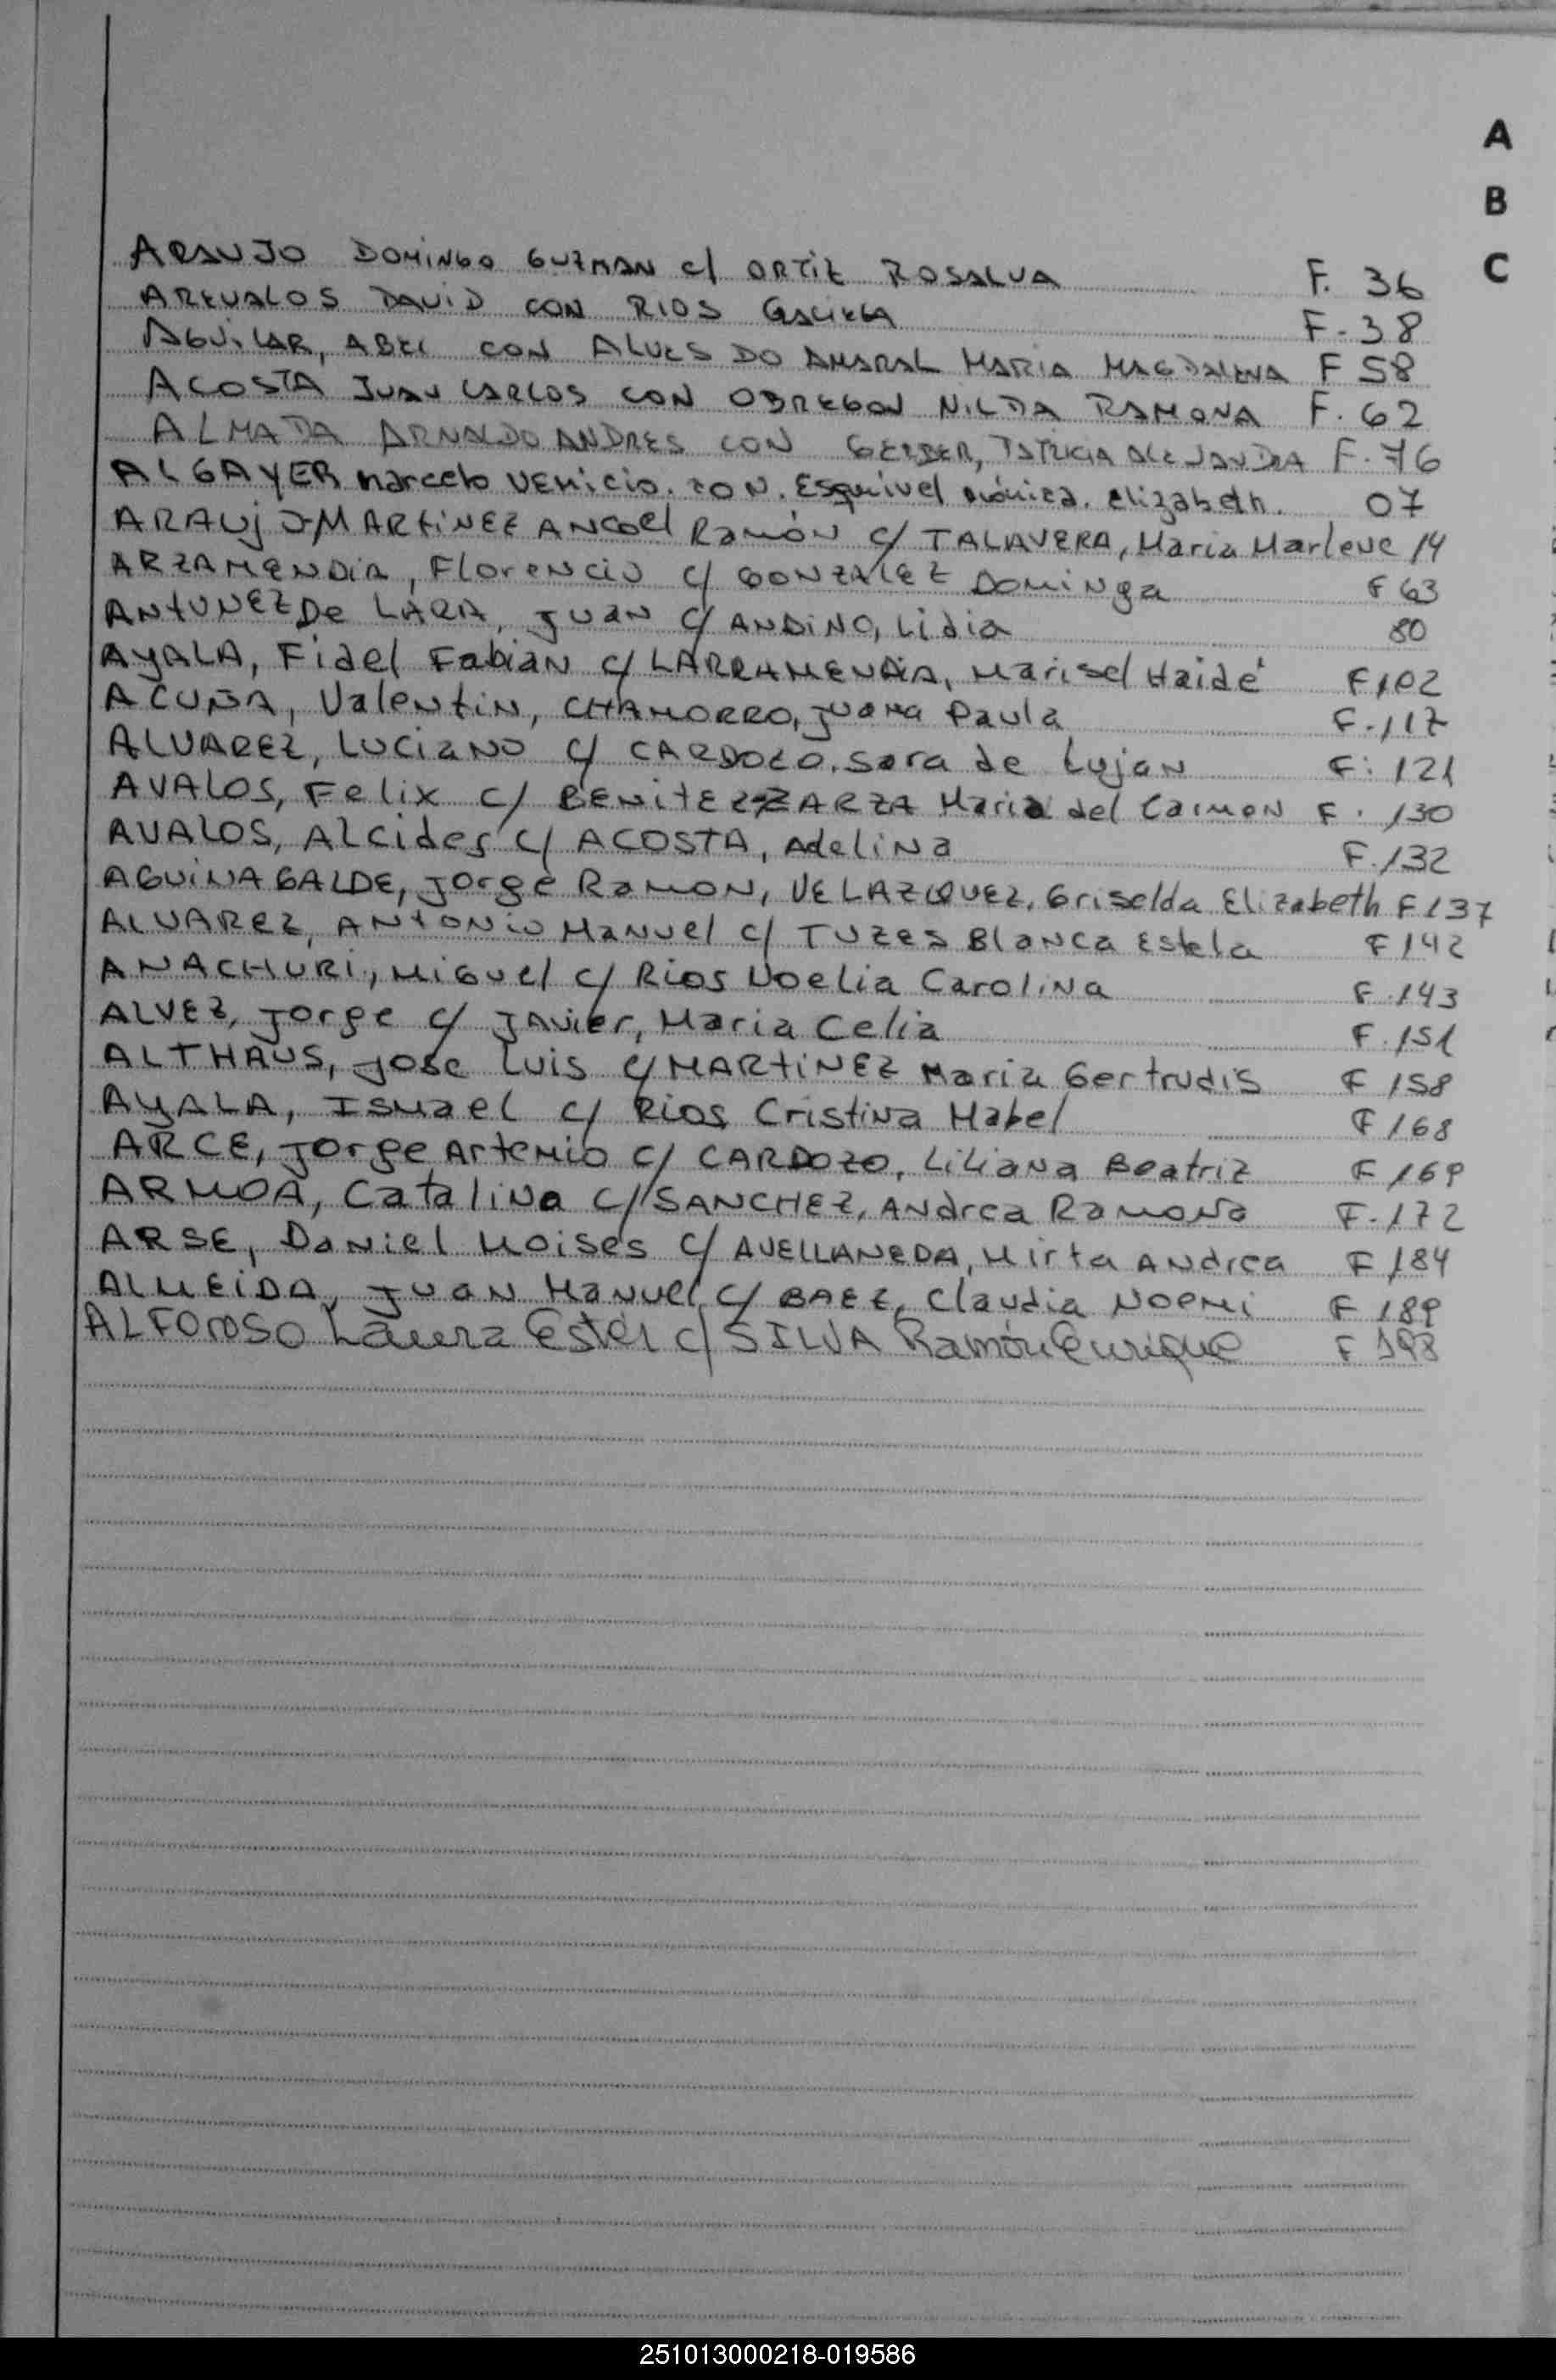 A
B
C
ARAUJO DOMINGO GUZMAN c/ ORTIZ ROSALVA F. 36
AREVALOS DAVID CON RIOS GRACIELA F. 38
AGUILAR, ABEL CON ALVES DO AMARAL MARIA MAGDALENA F 58
ACOSTA JUAN CARLOS CON OBREGON NILDA RAMONA F. 62
ALMADA ARNALDO ANDRES CON GERBER, PATRICIA ALEJANDRA F. 76
ALGAYER Marcelo VENICIO. CON. Esquivel Mónica. elizabeth. 07
ARAUJO-MARTINEZ Ramón c/ TALAVERA, Maria Marlene 14
ARZAMENDIA, Florencio c/ GONZALEZ Dominga F 63
ANTUNEZ De LARA, Juan c/ ANDINO, Lidia 80
AYALA, Fidel Fabian c/ LARRAMENDIA, Marisel Haidé F 102
ACUÑA, Valentin, CHAMORRO, Juana Paula F. 117
ALVAREZ, Luciano c/ CARDOZO, Sara de Lujan F: 121
AVALOS, Felix c/ BENITEZ ZARZA Maria del Carmen F. 130
AVALOS, Alcides c/ ACOSTA, Adelina F. 132
AGUINAGALDE, Jorge Ramon, VELAZQUEZ, Griselda Elizabeth F 137
ALVAREZ, Antonio Manuel c/ TUZES Blanca Estela F 142
ANACHURI, Miguel c/ Rios Noelia Carolina F. 143
ALVEZ, Jorge c/ Javier, Maria Celia F. 151
ALTHAUS, Jose Luis c/ MARTINEZ Maria Gertrudis F 158
AYALA, Ismael c/ Rios Cristina Mabel F 168
ARCE, Jorge Artemio c/ CARDOZO, Liliana Beatriz F 169
ARMOA, Catalino c/ SANCHEZ, Andrea Ramona F. 172
ARSE, Daniel Moises c/ AVELLANEDA, Mirta Andrea F 184
ALMEIDA, Juan Manuel c/ BAEZ, Claudia Noemi F 189
ALFONSO Laura Ester c/ SILVA Ramón Enrique F 198
251013000218-019586